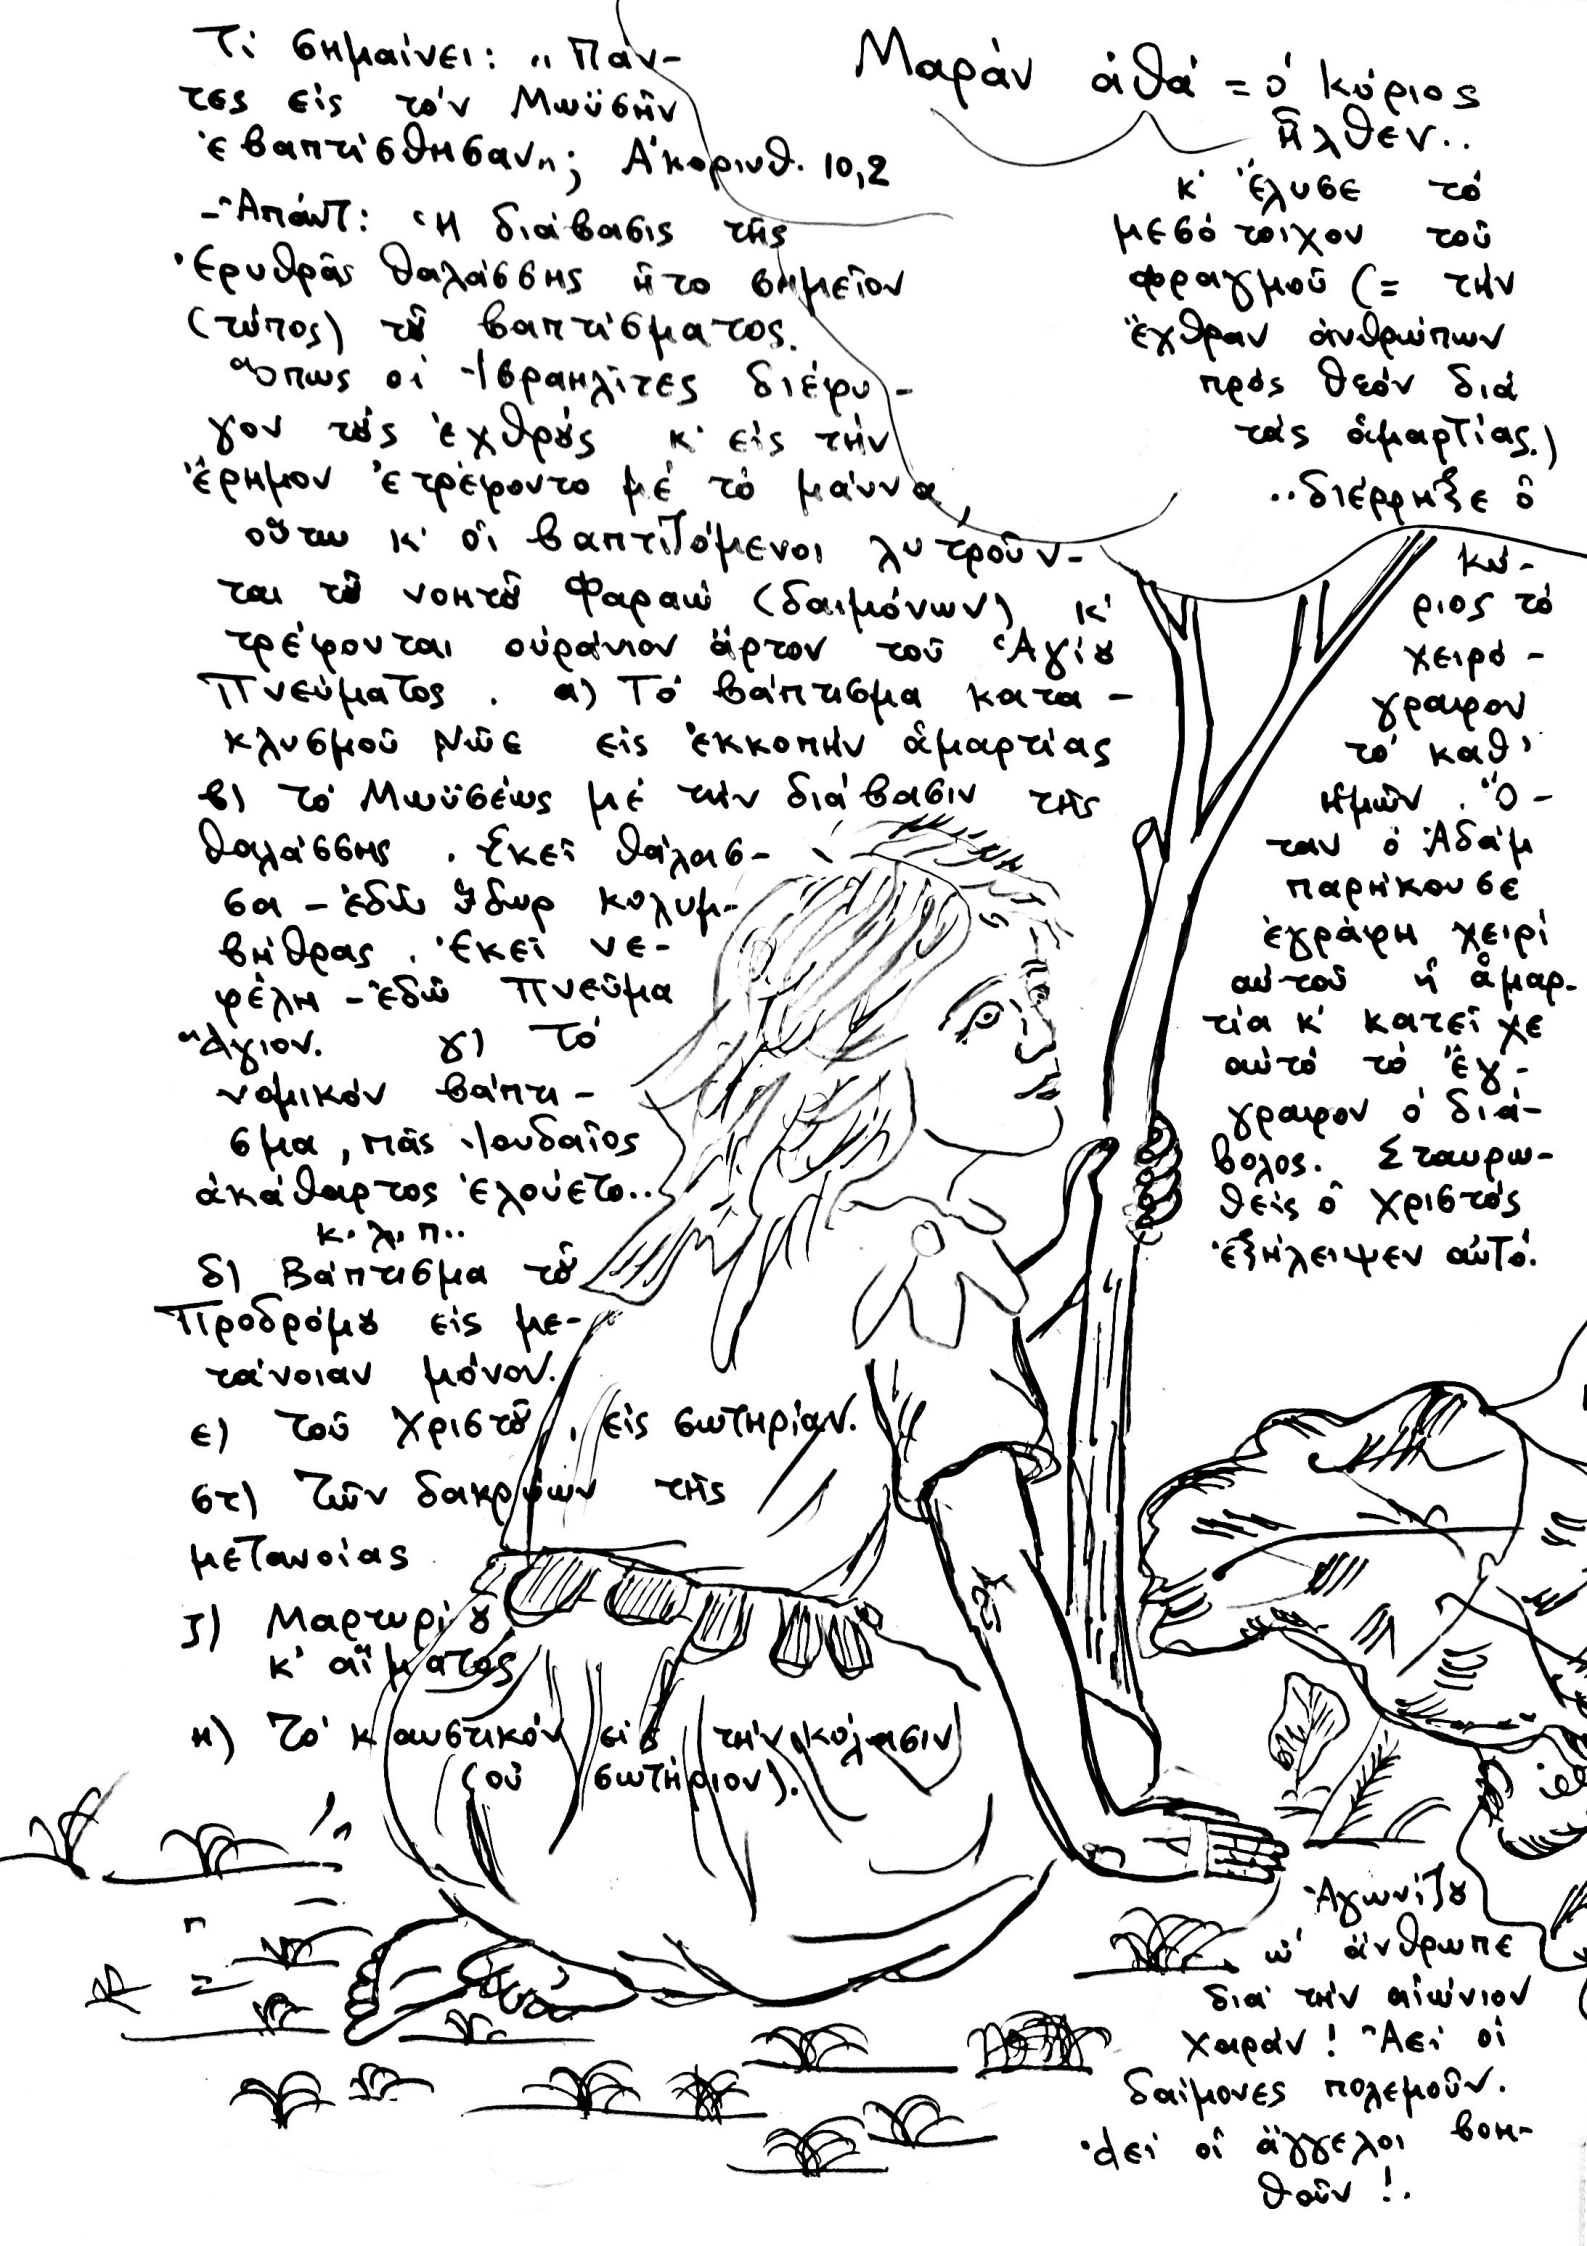 Τί σημαίνει: „Πάν-
τες εἰς τόν Μωϋσῆν
ἐβαπτίσθησαν"; Α΄κορινθ. 10,2
-Ἀπάντ: Ἡ διάβασις τῆς
Ἐρυθρᾶς θαλάσσης ἦτο σημεῖον
(τύπος) τȣ͂ βαπτίσματος.
Ὅπως οἱ Ἰσραηλῖτες διέφυ-
γον τȣ́ς ἐχθρȣ́ς κ' εἰς τήν
ἔρημον ἐτρέφοντο μέ τό μάννα,
οὕτω κ' οἱ βαπτιζόμενοι λυτροῦν-
ται τȣ͂ νοητȣ͂ Φαραώ (δαιμόνων) κ'
τρέφονται οὐράνιον ἄρτον τοῦ Ἁγίȣ
Πνεύματος. α) Τό βάπτισμα κατα-
κλυσμοῦ Νῶε εἰς ἐκκοπήν ἁμαρτίας
β) τό Μωϋσέως μέ τήν διάβασιν τῆς
θαλάσσης. Ἐκεῖ θάλασ-
σα - ἐδῶ ὕδωρ κολυμ-
βήθρας. Ἐκεῖ νε-
φέλη - ἐδῶ Πνεῦμα
Ἅγιον. γ) τό
νομικόν βάπτι-
σμα, πᾶς Ἰουδαῖος
ἀκάθαρτος ἐλούετο..
κ.λ.π..
δ) Βάπτισμα τȣ͂
Προδρόμȣ εἰς με-
τάνοιαν μόνον.
ε) τοῦ Χριστȣ͂, εἰς σωτηρίαν.
στ) Τῶν δακρύων τῆς
μετανοίας
ζ) Μαρτυρίȣ
κ' αἵματος
η) Τό καυστικόν εἰς τήν κόλασιν
(οὐ σωτήριον).
Μαράν ἀθά = ὁ κύριος
ἦλθεν..
κ' ἔλυσε τό
μεσότοιχον τοῦ
φραγμοῦ (= τήν
ἔχθραν ἀνθρώπων
πρός θεόν διά
τάς ἁμαρτίας.)
..διέρρηξε ὁ
κύ-
ριος τό
χειρό-
γραφον
τό καθ'
ἡμῶν. Ὅ-
ταν ὁ Ἀδάμ
παρήκουσε
ἐγράφη χειρί
αὐτοῦ ἡ ἁμαρ-
τία κ' κατεῖχε
αὐτό τό ἔγ-
γραφον ὁ διά-
βολος. Σταυρω-
θείς ὁ Χριστός
ἐξήλειψεν αὐτό.
Ἀγωνίζȣ
ὦ ἄνθρωπε
διά τήν αἰώνιον
χαράν! Ἀεί οἱ
δαίμονες πολεμοῦν.
ἀεί οἱ ἄγγελοι βοη-
θοῦν!.